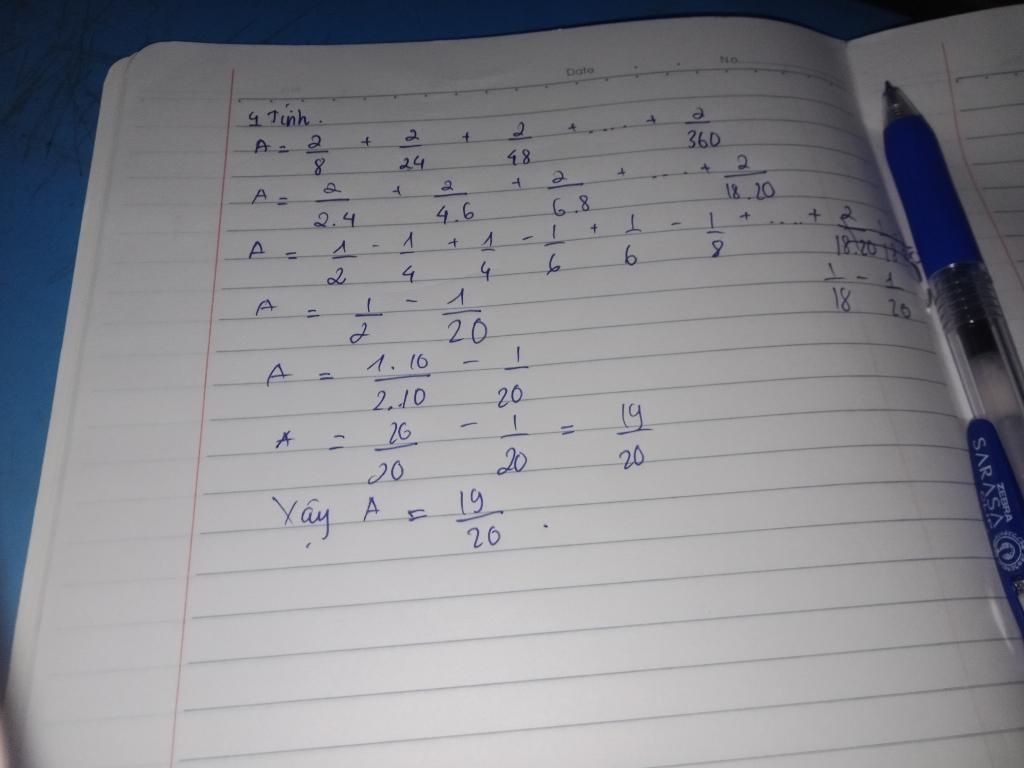 Date No.
4 Tính.
A = 2/8 + 2/24 + 2/48 + .... + 2/360
A = 2/2.4 + 2/4.6 + 2/6.8 + .... + 2/18.20
A = 1/2 - 1/4 + 1/4 - 1/6 + 1/6 - 1/8 + .... + 2/18.20
1/18 - 1/20
A = 1/2 - 1/20
A = 1.10/2.10 - 1/20
A = 20/20 - 1/20 = 19/20
Vậy A = 19/20.
SARASA
ZEBRA